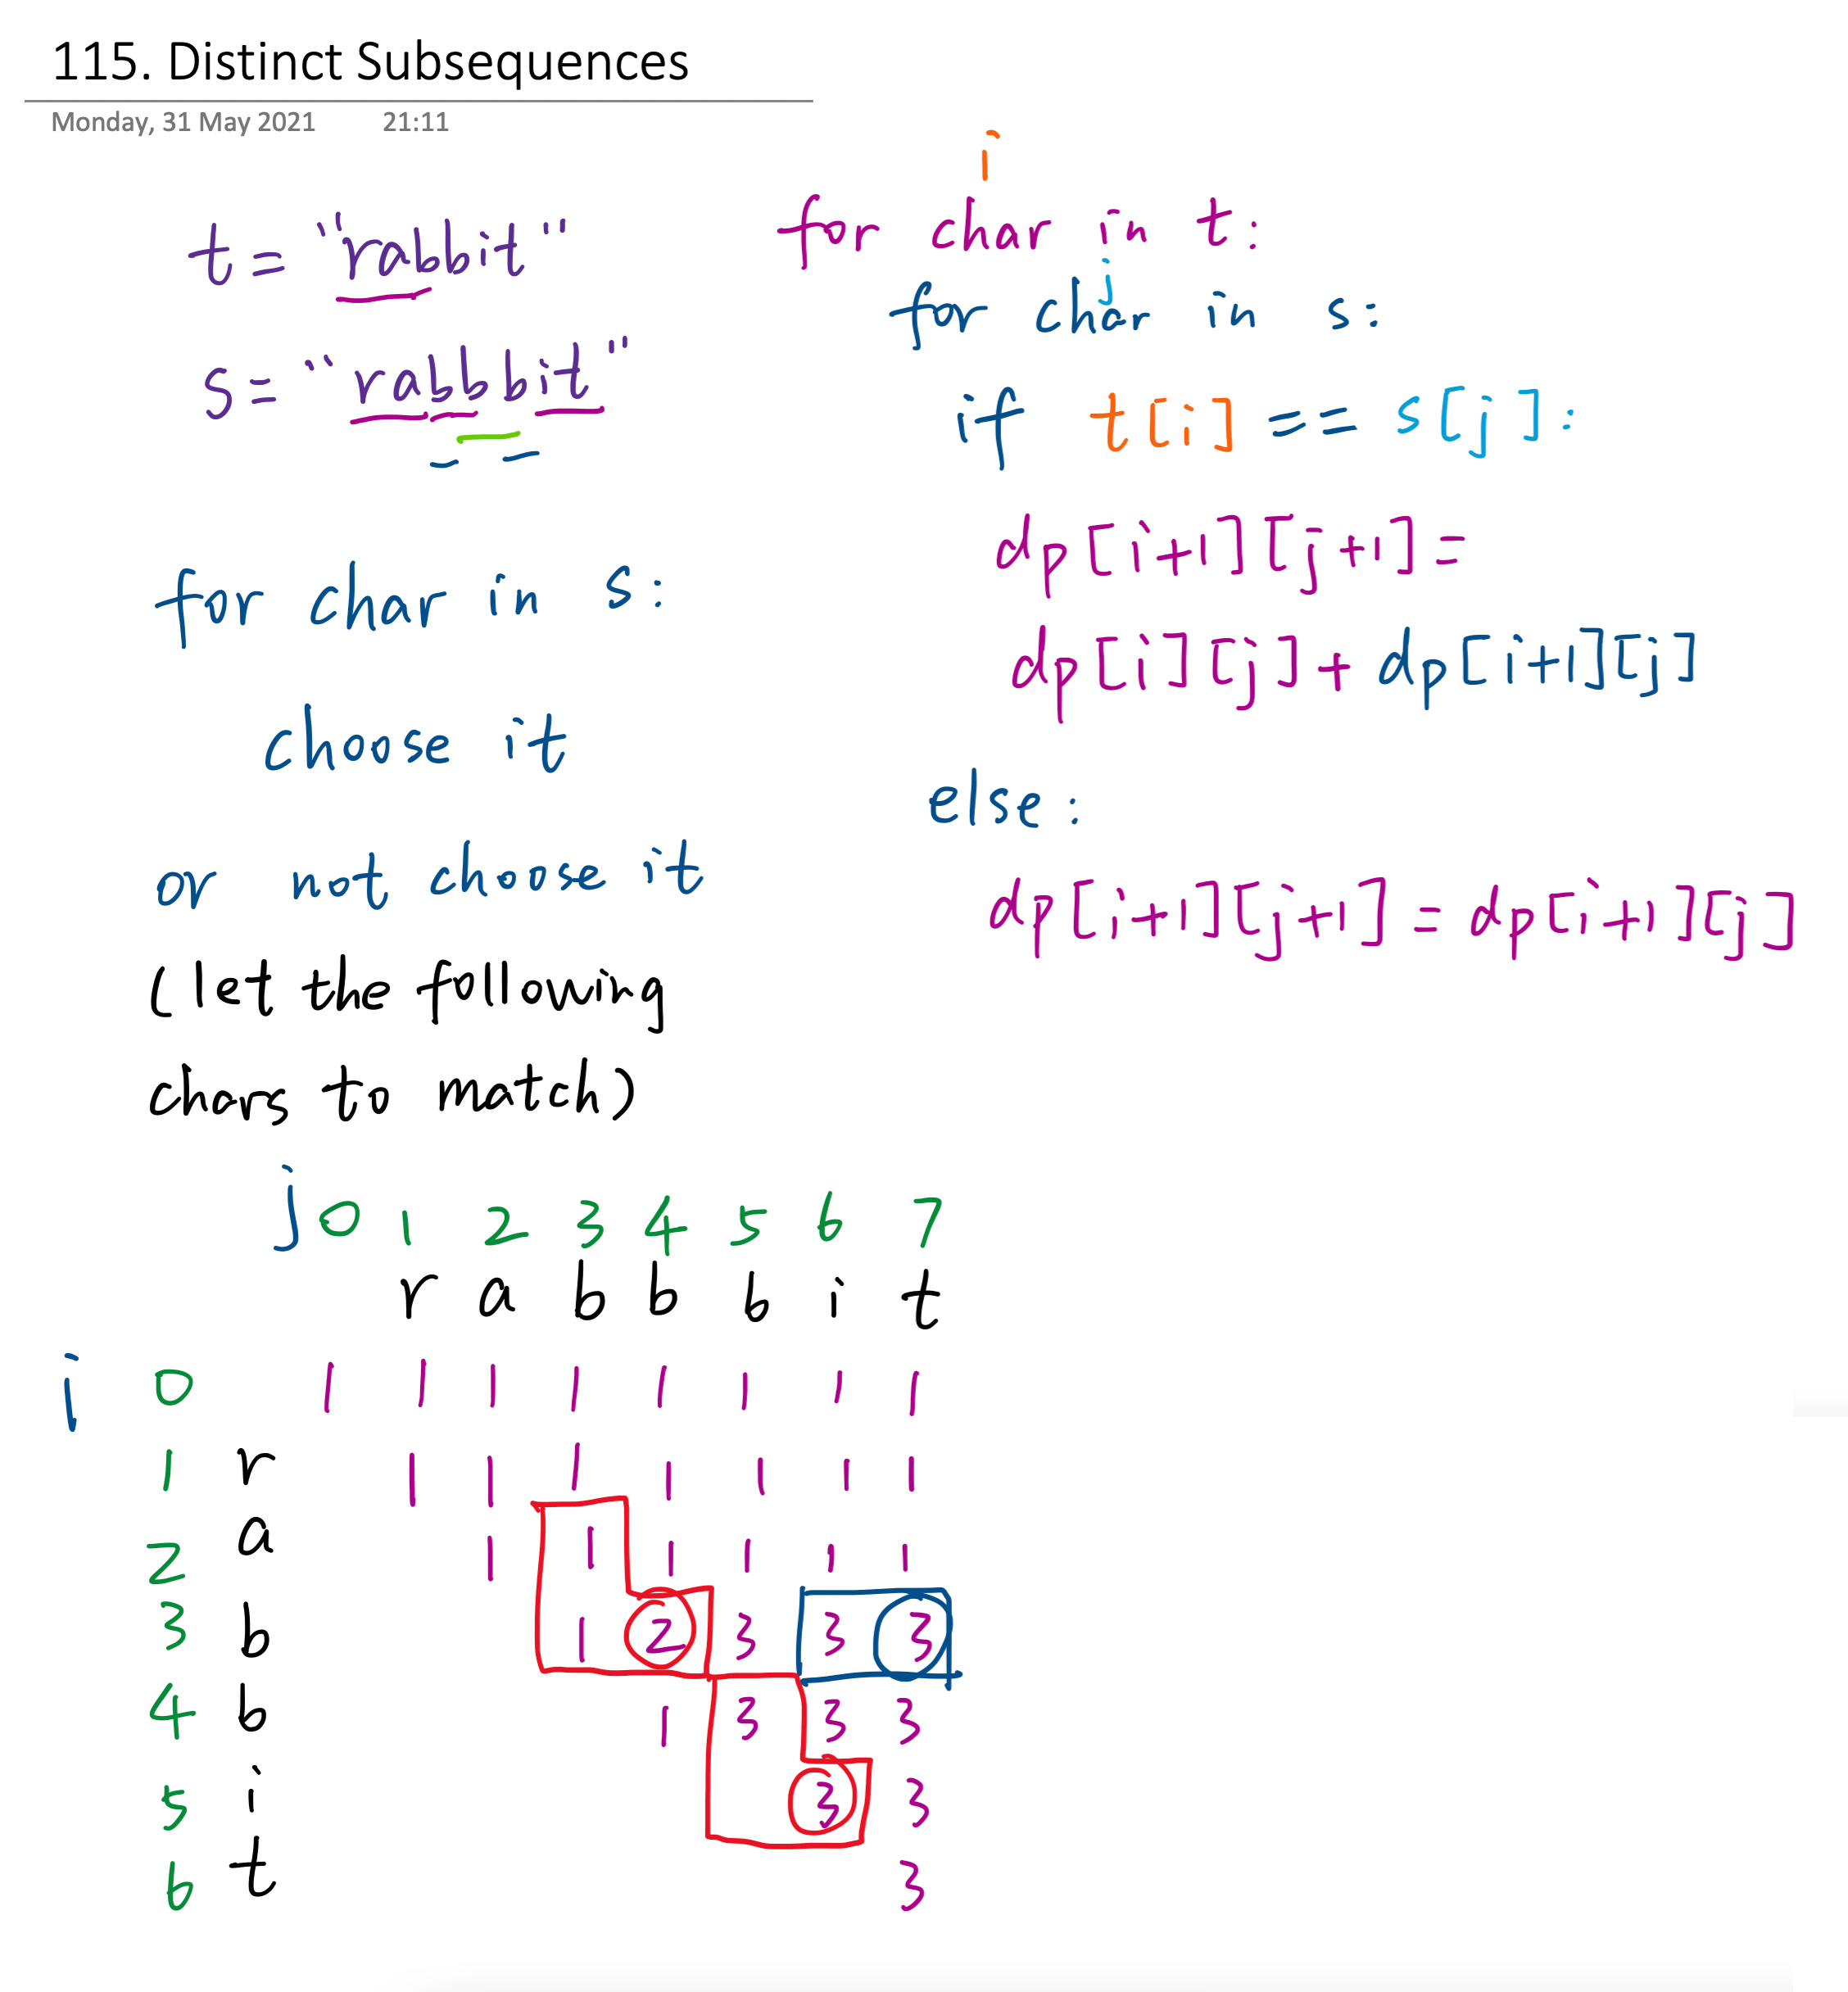 115. Distinct Subsequences
Monday, 31 May 2021 21:11
t = "rabbit"
s = "rabbbit"
for char in s:
choose it
or not choose it
(let the following
chars to match)
i
for char in t:
j
for char in s:
if t[i] == s[j]:
dp[i+1][j+1] =
dp[i][j] + dp[i+1][j]
else:
dp[i+1][j+1] = dp[i+1][j]
j 0 1 2 3 4 5 6 7
r a b b b i t
i 0 1 1 1 1 1 1 1 1
1 r 1 1 1 1 1 1 1
2 a 1 1 1 1 1 1
3 b 1 2 3 3 3
4 b 1 3 3 3
5 i 3 3
6 t 3